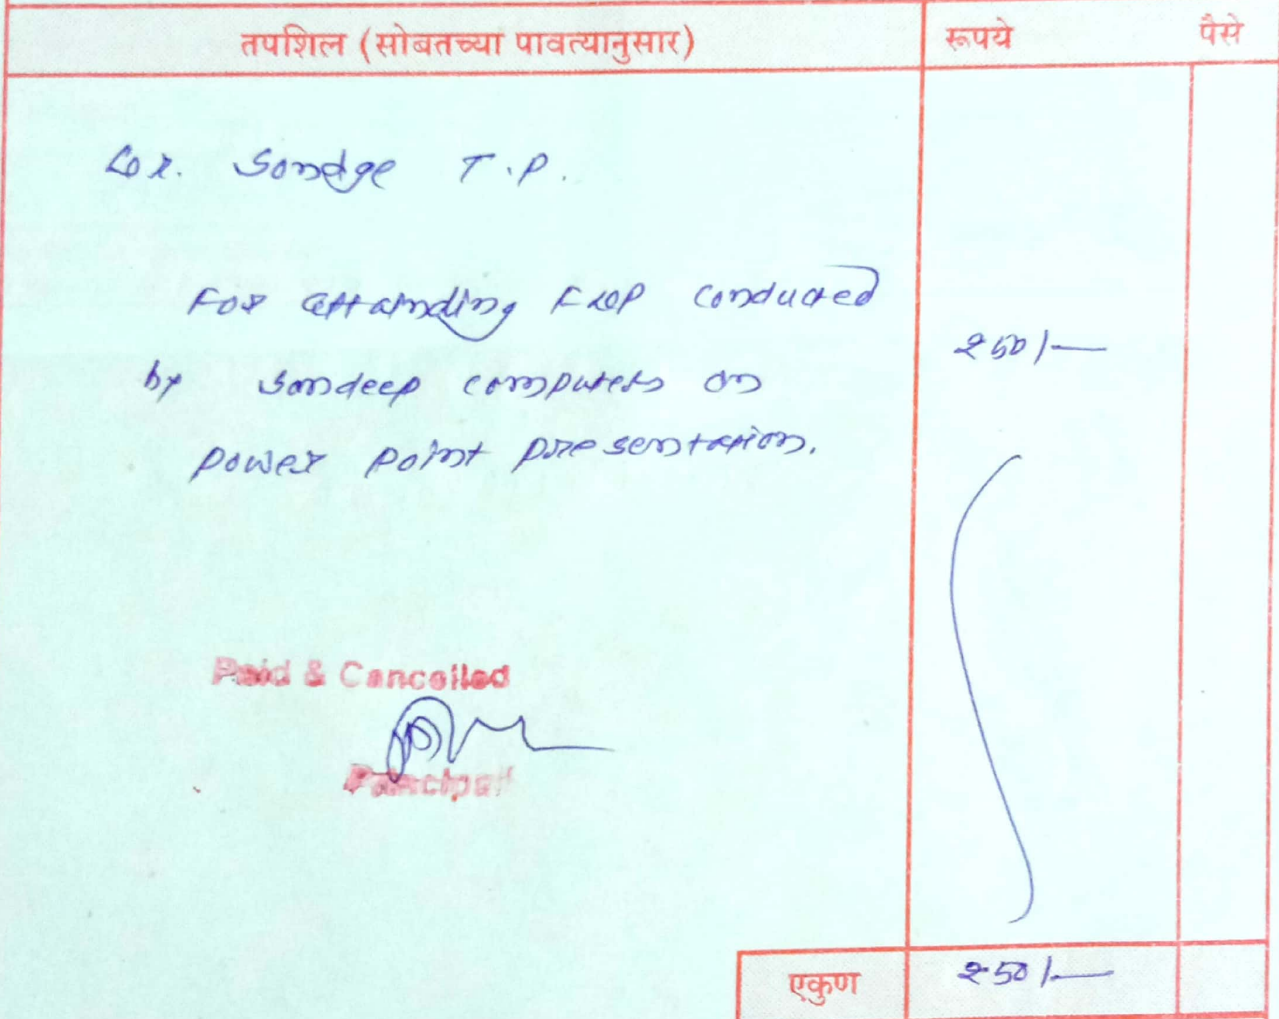 तपशिल (सोबतच्या पावत्यानुसार) रूपये पैसे
Lox. Sondge T.P.
For attainding FLOP conducted
250/-
by Sandeep computers on
power point presentation.
Paid & Cancelled
Principal
एकुण 250/-